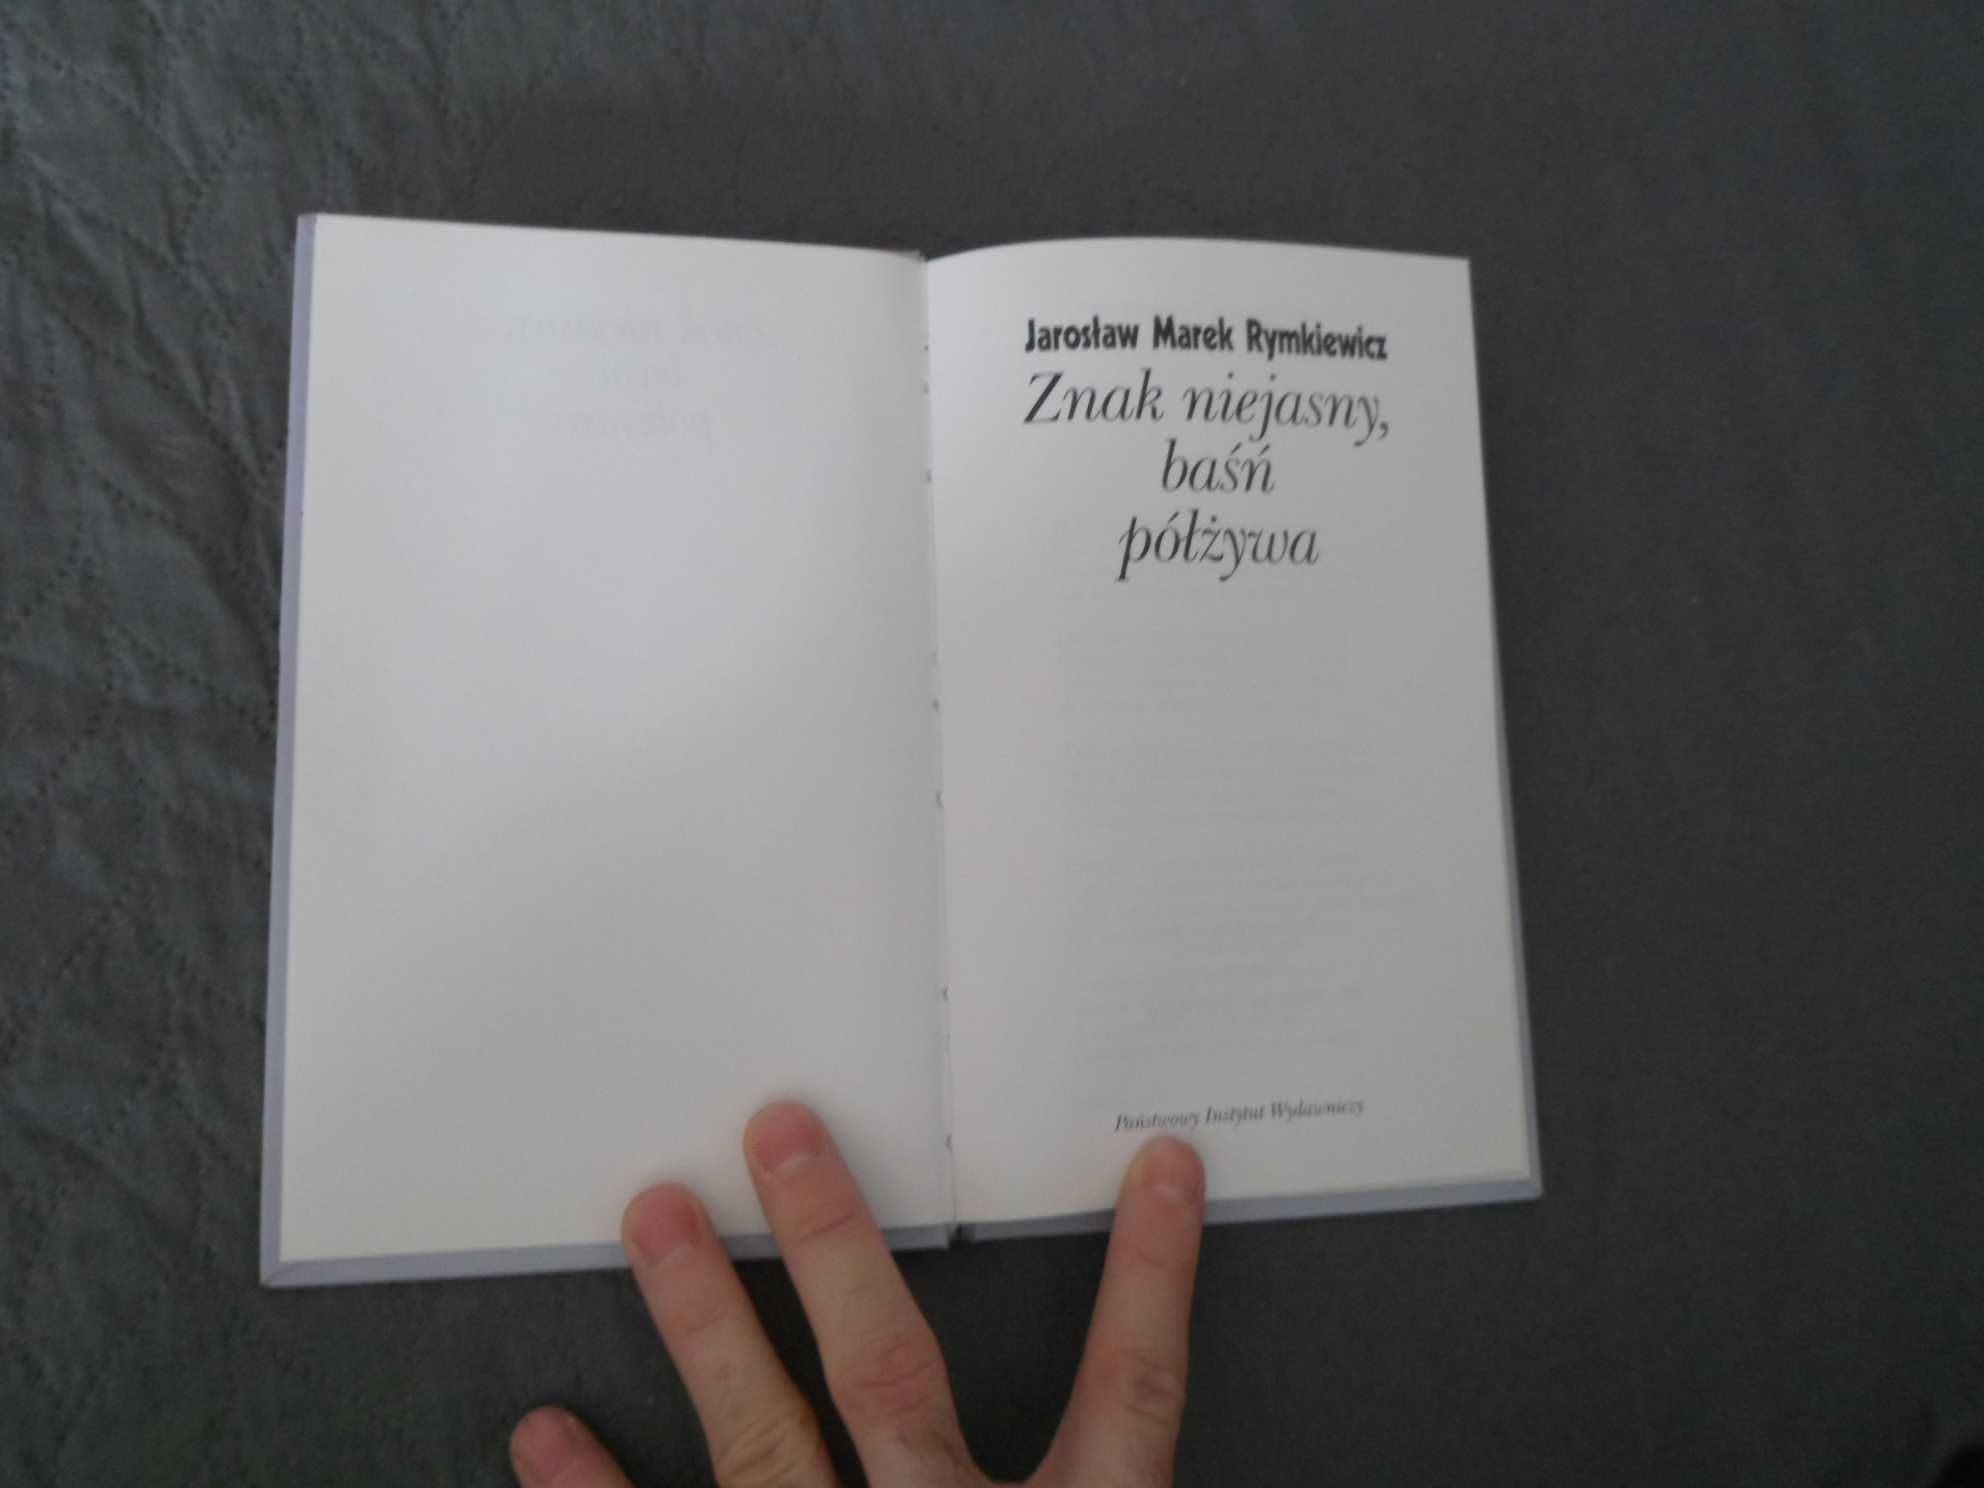 Jarosław Marek Rymkiewicz
Znak niejasny,
baśń
półżywa
Państwowy Instytut Wydawniczy